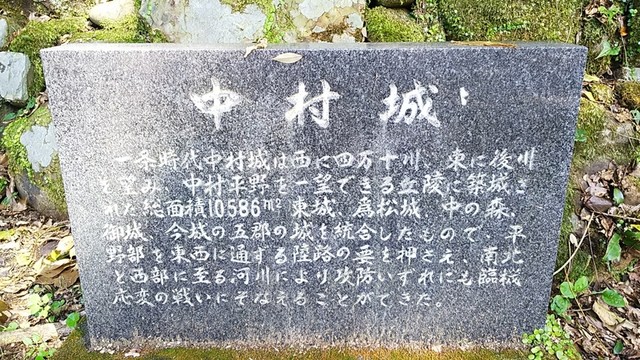 中村城ト
一条時代中村城は西に四万十川、東に後川
を望み、中村平野を一望できる丘陵に築城さ
れた総面積10586m²東城、為松城、中の森、
御城、今城の五郡の城を統合したもので、平
野部を東西に通する陸路の要を押さえ、南北
と西部に至る河川により攻防いずれにも臨機
応変の戦いにそなえることができた。